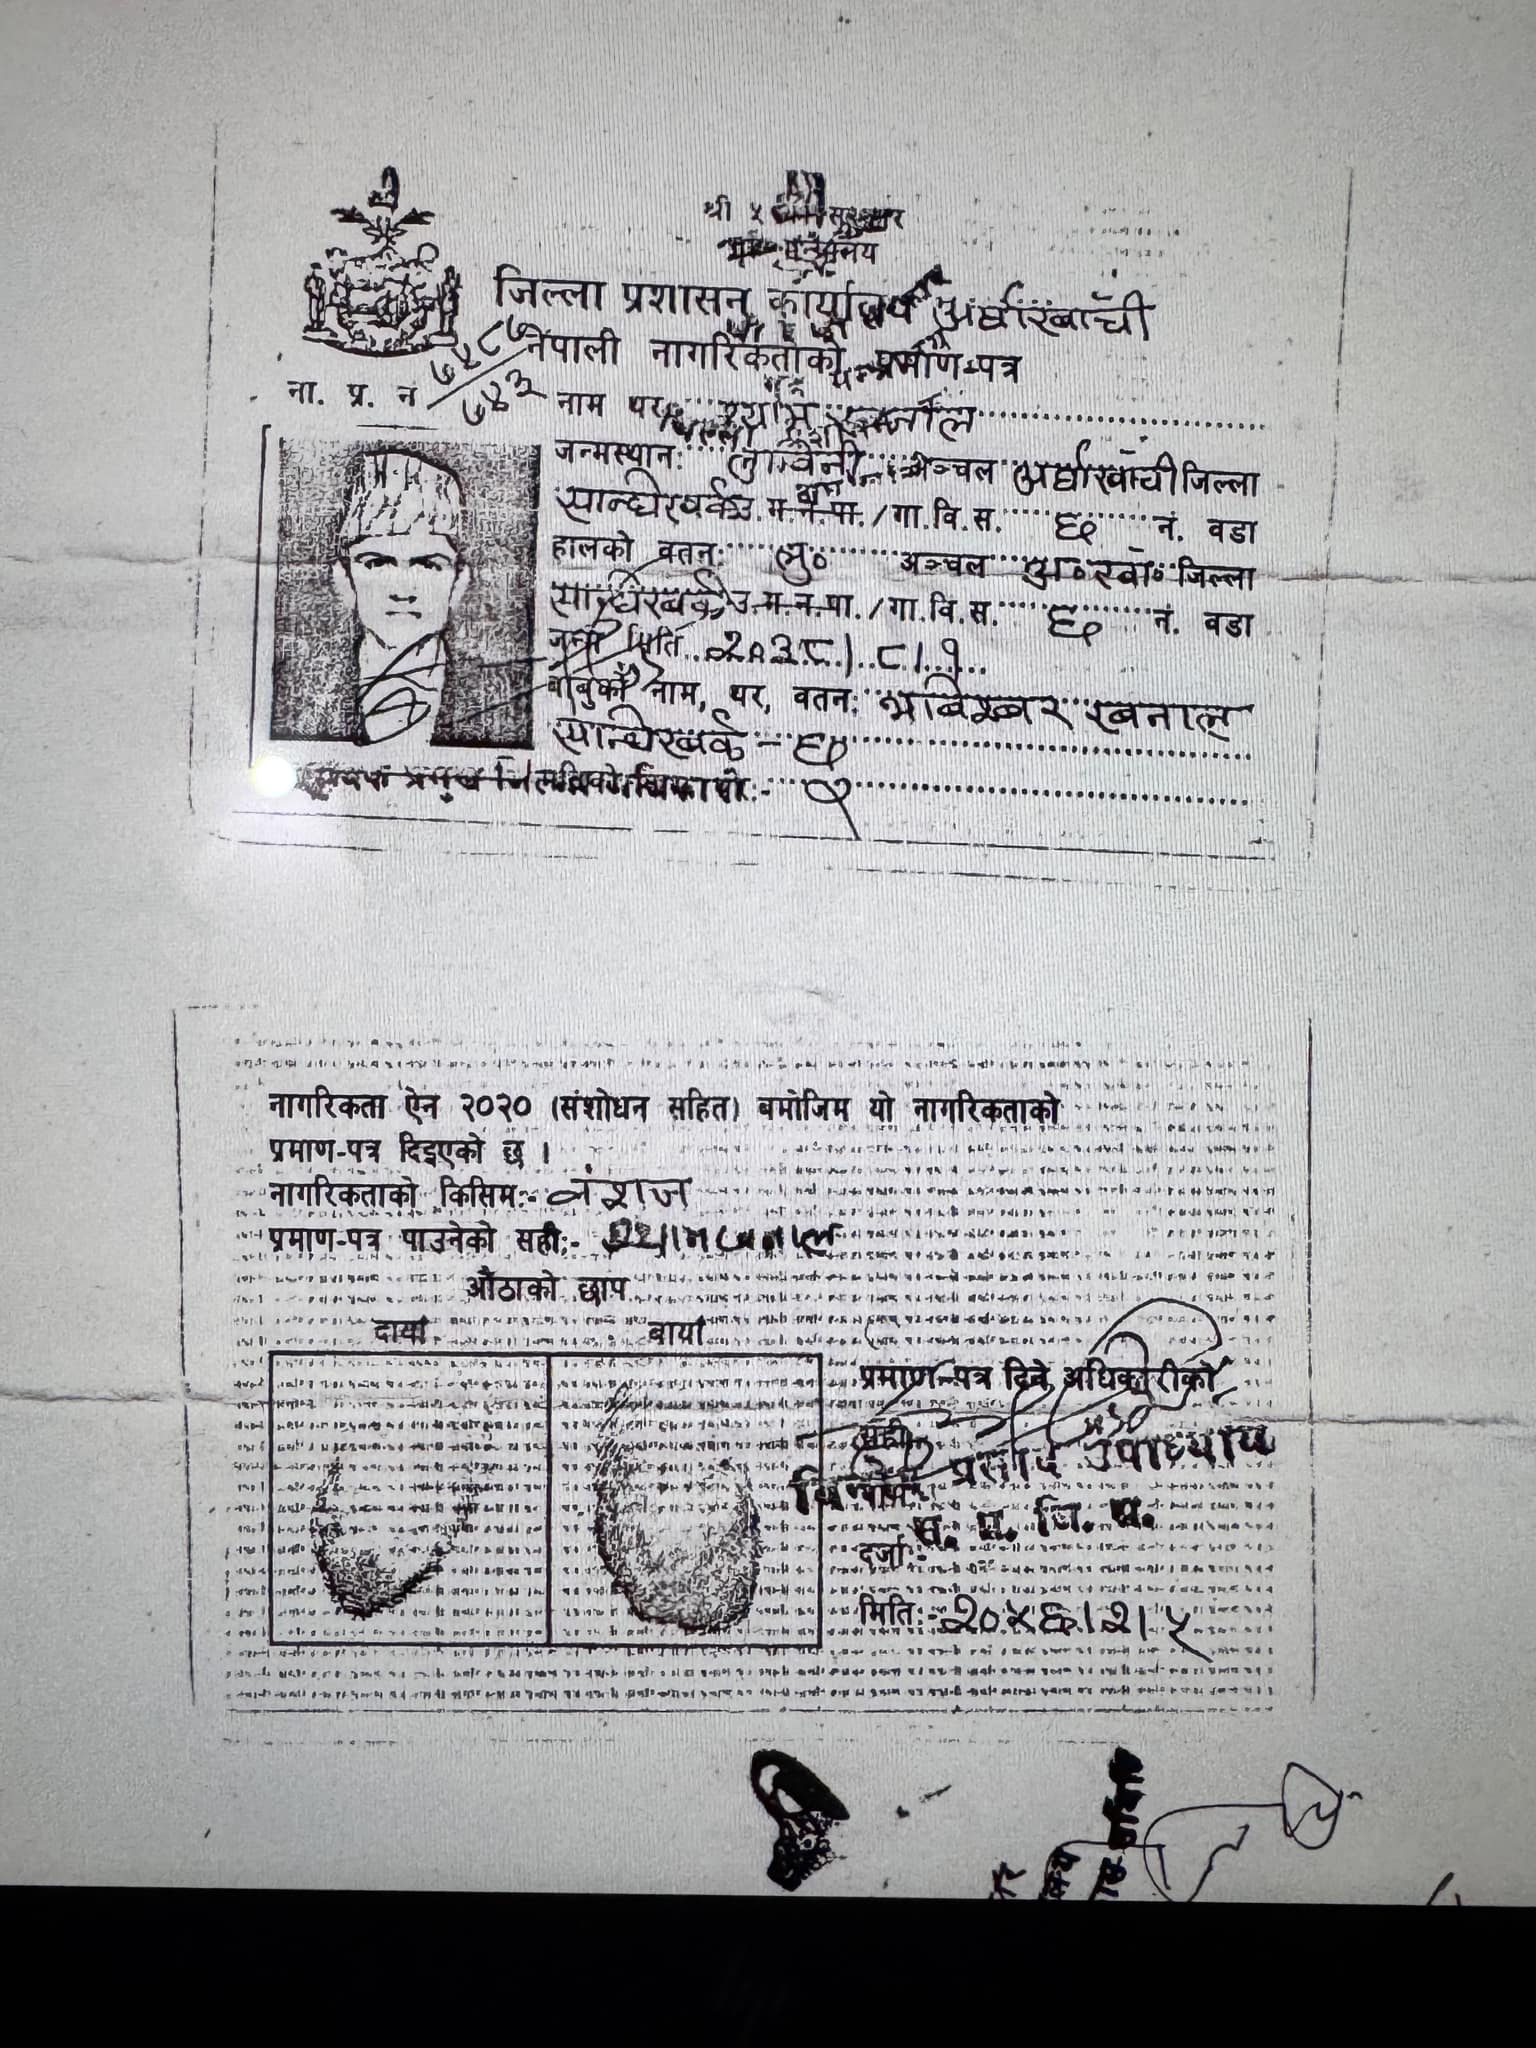 श्री ५
जिल्ला प्रशासन कार्यालय अर्घाखाँची
नेपाली नागरिकताको प्रमाण-पत्र
ना. प्र. नं
नाम थर: श्याम खनाल
जन्मस्थान: लुम्बिनी अञ्चल अर्घाखाँची जिल्ला
सान्धिखर्क उ.म.न.पा./गा.वि.स. ६ नं. वडा
हालको वतन: लु० अञ्चल अ०खाँ० जिल्ला
सान्धिखर्क उ.म.न.पा./गा.वि.स. ६ नं. वडा
जन्म मिति २०३८।८।१
बाबुको नाम, थर, वतन: खनाल
सान्धिखर्क - ६
नागरिकता ऐन २०२० (संशोधन सहित) बमोजिम यो नागरिकताको
प्रमाण-पत्र दिइएको छ ।
नागरिकताको किसिम:- वंशज
प्रमाण-पत्र पाउनेको सही:- श्याम खनाल
औंठाको छाप
दायां बायां
प्रमाण-पत्र दिने अधिकारीको
सही
प्रसाद उपाध्याय
दर्जा:-
मिति:- २०५६।२।५